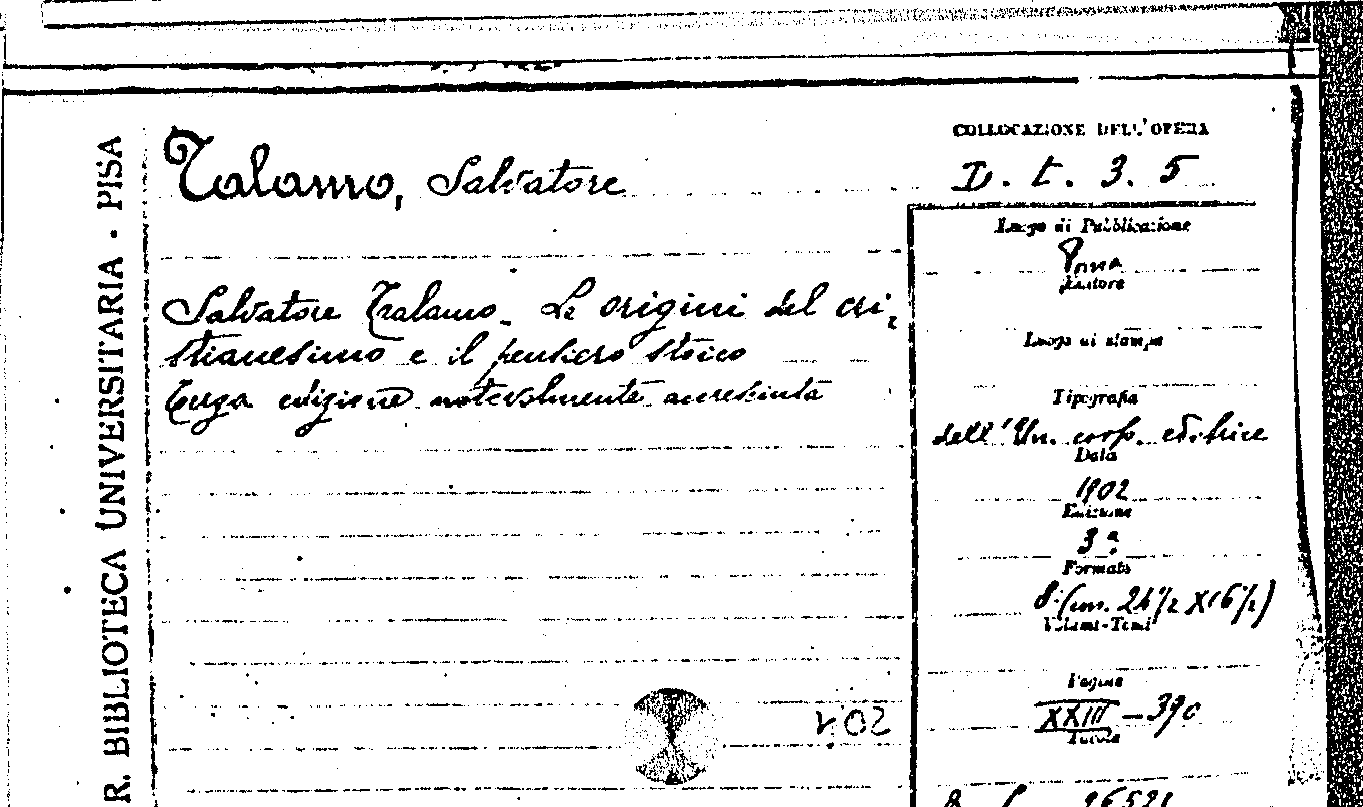 R. BIBLIOTECA UNIVERSITARIA · PISA
Talamo, Salvatore
Salvatore Talamo - Le origini del cri-
stianesimo e il pensiero stoico
Terza edizione notevolmente accresciuta
COLLOCAZIONE DELL'OPERA
D. t. 3. 5
Luogo di Pubblicazione
Roma
Editore
Luogo di stampa
Tipografia
dell'Un. coop. editrice
Data
1902
Edizione
3ª
Formato
8° (cm. 24 1/2 X 16 1/2)
Volumi-Tomi
Pagine
XXIII - 390
Tavole